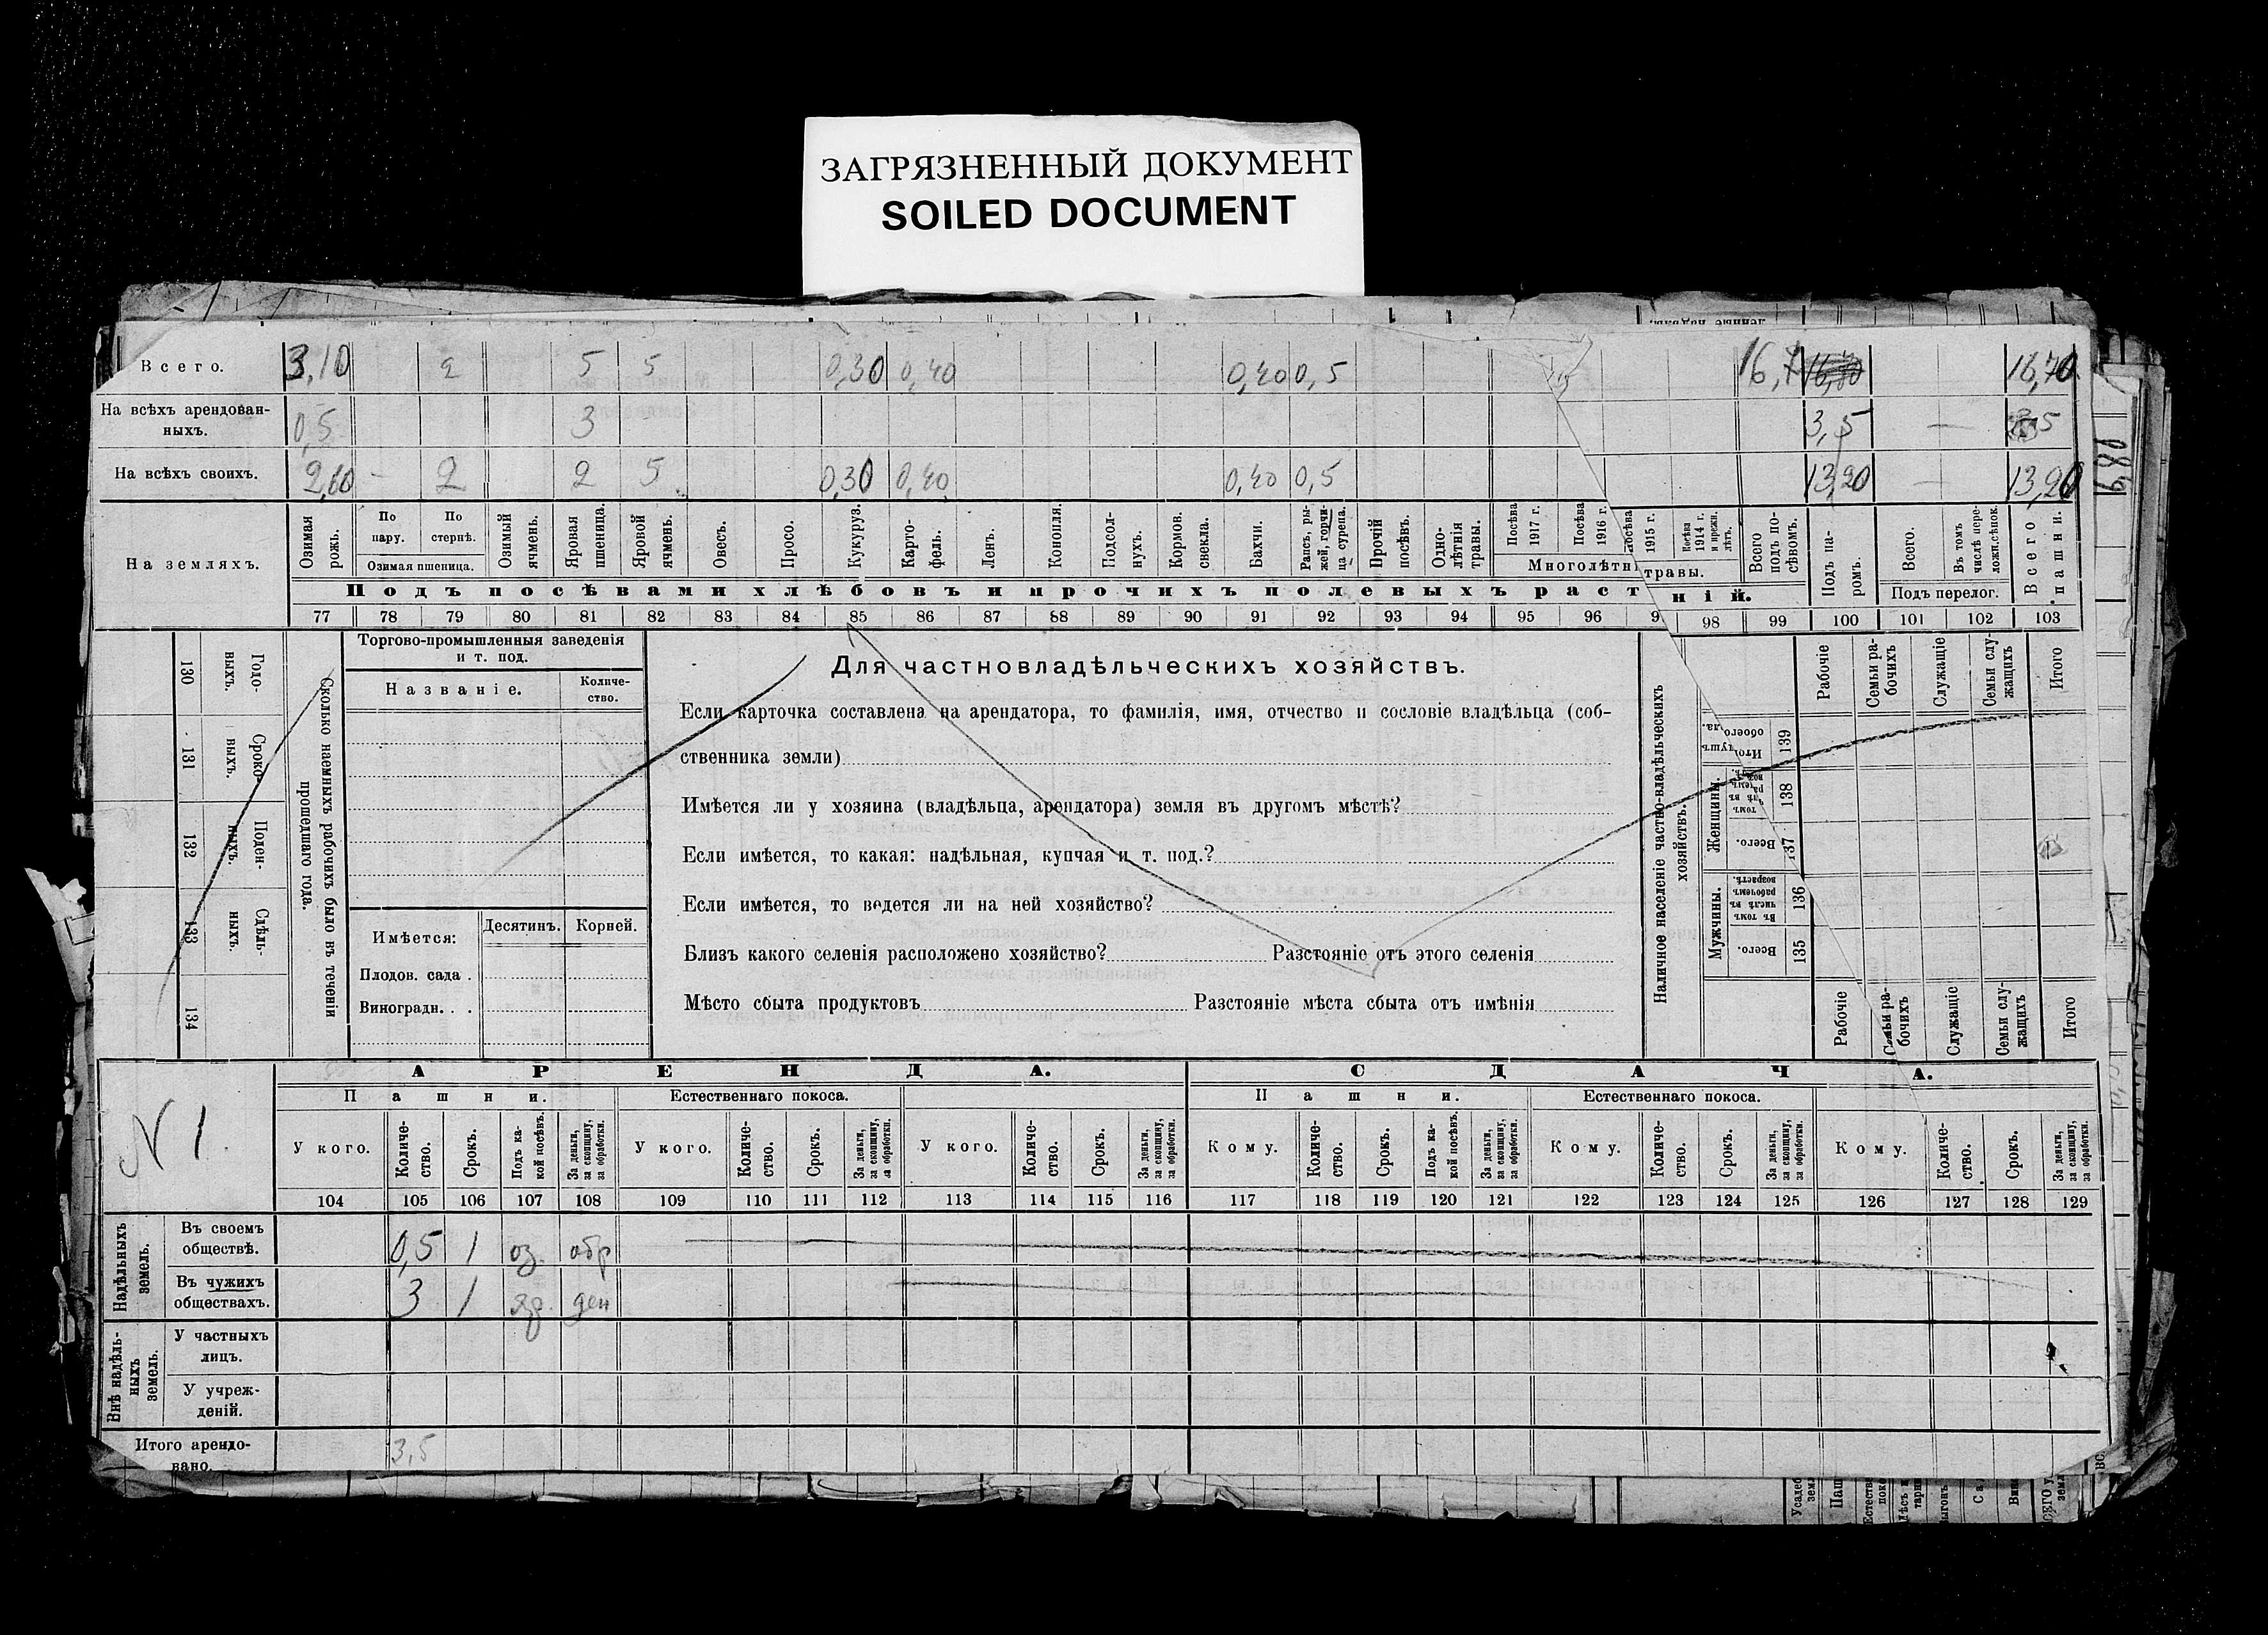 ЗАГРЯЗНЕННЫЙ ДОКУМЕНТ
SOILED DOCUMENT
Всего. 3,10 2 5 5 0,30 0,40 0,40 0,5 16,7 16,70
На всѣхъ арендован-
ныхъ. 0,5 3 3,5 — 3,5
На всѣхъ своихъ. 2,60 — 2 2 5 0,30 0,40 0,40 0,5 13,20 — 13,20
На земляхъ.
Озимая рожь.
По пару.
По стернѣ.
Озимая пшеница.
Озимый ячмень.
Яровая пшеница.
Яровой ячмень.
Овесъ.
Просо.
Кукуруз.
Карто-
фель.
Ленъ.
Конопля.
Подсол-
нухъ.
Кормов. свекла.
Бахчи.
Рапсъ, ры-
жей, горчи-
ца сурепа.
Прочій посѣвъ.
Одно-
лѣтнія травы.
Посѣва 1917 г.
Посѣва 1916 г.
посѣва 1915 г.
Посѣва 1914 г. и прежн. лѣтъ.
Многолѣтн травы.
Всего подъ по-
сѣвомъ.
Подъ па-
ромъ.
Всего.
Въ томъ числѣ пере-
ложн.сѣнок.
Подъ перелог.
Всего пашни.
Подъ посѣвами хлѣбовъ и прочихъ полевыхъ раст ній.
77 78 79 80 81 82 83 84 85 86 87 88 89 90 91 92 93 94 95 96 9 98 99 100 101 102 103
130 Годо-
ныхъ.
131 Сроко-
ныхъ.
132 Поден-
ныхъ.
133 Сдѣль-
ныхъ.
134
Сколько наемныхъ рабочихъ было въ теченіи
прошедшаго года.
Торгово-промышленныя заведенія
и т. под.
Названіе.
Количе-
ство.
Имѣется:
Десятинъ.
Корней.
Плодов. сада .
Виноградн. . .
Для частновладѣльческихъ хозяйствъ.
Если карточка составлена на арендатора, то фамилія, имя, отчество и сословіе владѣльца (соб-
ственника земли)
Имѣется ли у хозяина (владѣльца, арендатора) земля въ другомъ мѣстѣ?
Если имѣется, то какая: надѣльная, купчая и т. под.?
Если имѣется, то ведется ли на ней хозяйство?
Близъ какого селенія расположено хозяйство? Разстояніе отъ этого селенія
Мѣсто сбыта продуктовъ Разстояніе мѣста сбыта отъ имѣнія
Наличное населеніе частно-владѣльческихъ
хозяйствъ.
Мужчины.
Женщины.
Всего.
Въ томъ числѣ въ рабочемъ возрастѣ.
Всего.
135 136 137 138 139
Рабочіе
Семьи ра-
бочихъ
Служащіе
Семьи слу-
жащихъ
Итого
Рабочіе
Семьи ра-
бочихъ
Служащіе
Семьи слу-
жащихъ
Итого
N 1.
АРЕНДА.
СДАЧА.
Пашни.
Естественнаго покоса.
Пашни.
Естественнаго покоса.
У кого.
Количе-
ство.
Срокъ.
Подъ ка-
кой посѣвъ.
За деньги, за скопщину, за обработки.
У кого.
Количе-
ство.
Срокъ.
За деньги, за скопщину, за обработки.
У кого.
Количе-
ство.
Срокъ.
За деньги, за скопщину, за обработки.
Кому.
Количе-
ство.
Срокъ.
Подъ ка-
кой посѣвъ.
За деньги, за скопщину, за обработки.
Кому.
Количе-
ство.
Срокъ.
За деньги, за скопщину, за обработки.
Кому.
Количе-
ство.
Срокъ.
За деньги, за скопщину, за обработки.
104 105 106 107 108 109 110 111 112 113 114 115 116 117 118 119 120 121 122 123 124 125 126 127 128 129
Надѣльныхъ
земель.
Въ своемъ
обществѣ. 0,5 1 оз. обр
Въ чужихъ
обществахъ. 3 1 яр. ден
Внѣ надѣль-
ныхъ
земель.
У частныхъ
лицъ.
У учреж-
деній.
Итого арендо-
вано. 3,5